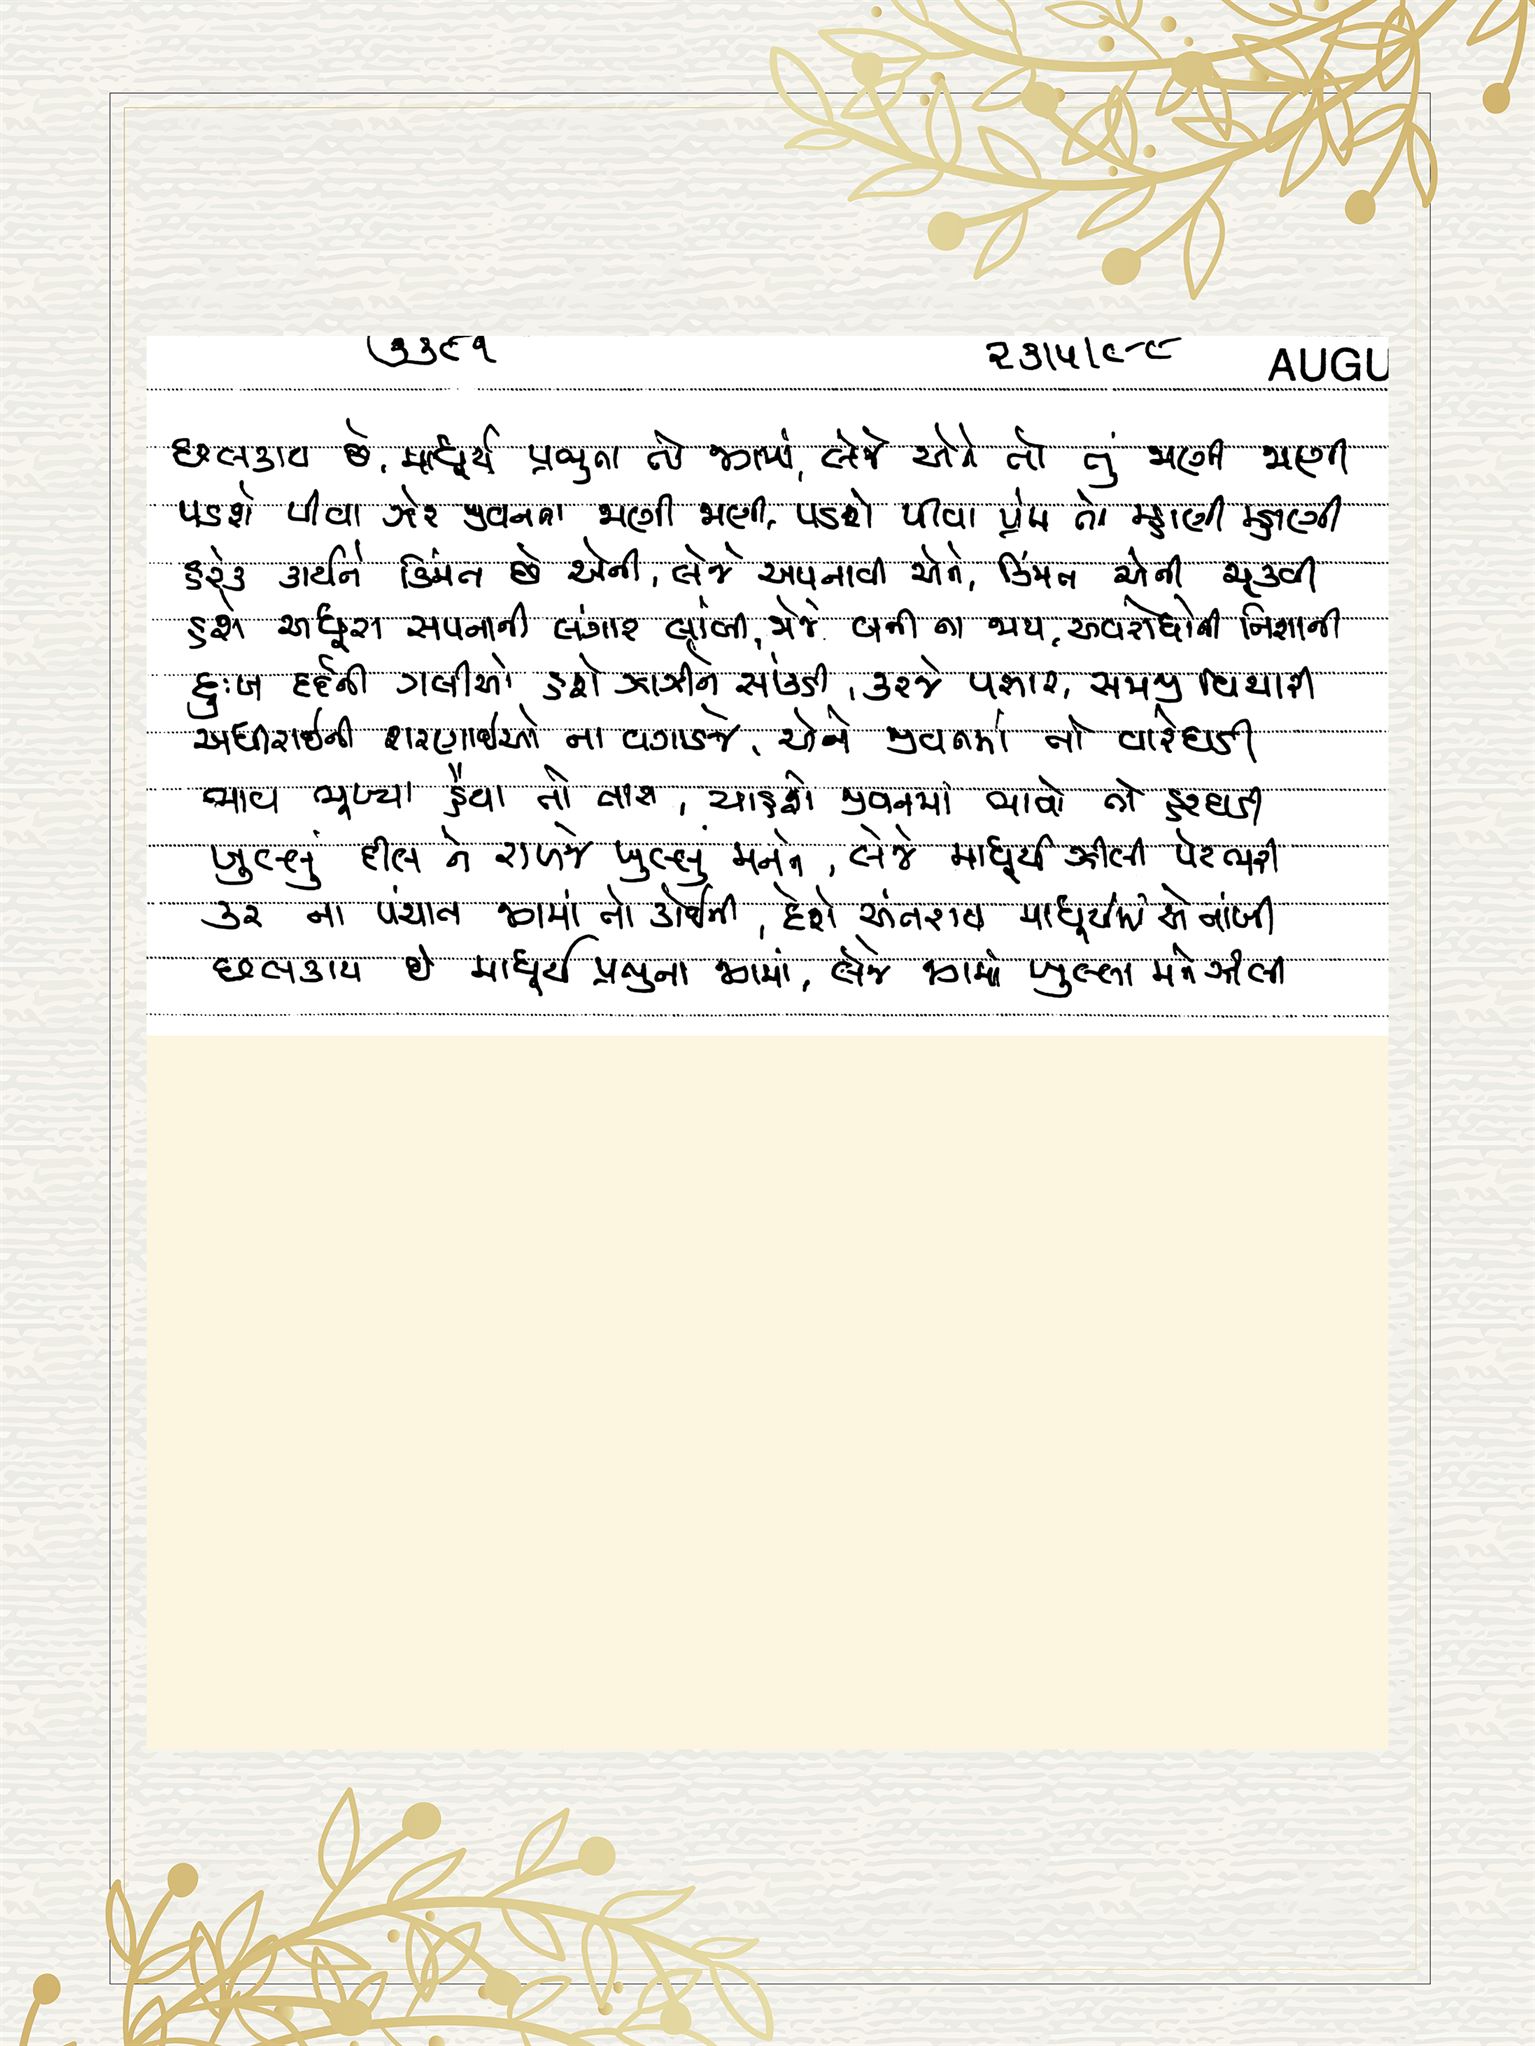 ૩૩૯૧ ૨૩/૫/૯૯ AUGU
છલકાય છે, માધૂર્ય પ્રભુના તો જગમાં, લેજે એને તો તું માણી માણી
પડશે પીવા ઝેર જીવનના જાણી જાણી, પડશે પીવા પ્રેમ તો મ્હાણી મ્હાણી
હરેક કાર્યને કિંમત છે એની, લેજે અપનાવી એને, કિંમત એની ચૂકવી
હશે અધૂરા સપનાની લંગાર લાંબી, જોજે બની ના જાય, અવરોધોની નિશાની
દુઃખ દર્દની ગલીઓ હશે ઝાઝીને સાંકડી, કરજે પસાર, સમજી વિચારી
અધીરાઈની શરણાઈઓ ના વગાડજે, એને જીવનમાં તો વારેઘડી
ભાવ ભૂખ્યા હૈયા તો તારા, ચાહશે જીવનમાં ભાવો તો હરઘડી
ખુલ્લું દીલ ને રાખજે ખુલ્લું મનને, લેજે માધૂર્ય ઝીલી પેટભરી
કર ના પંચાત જગમાં તો કોઈની, દેશે અંતરાય માધૂર્યમાં એ નાંખી
છલકાય છે માધૂર્ય પ્રભુના જગમાં, લેજે જગમાં ખુલ્લા મને ઝીલી